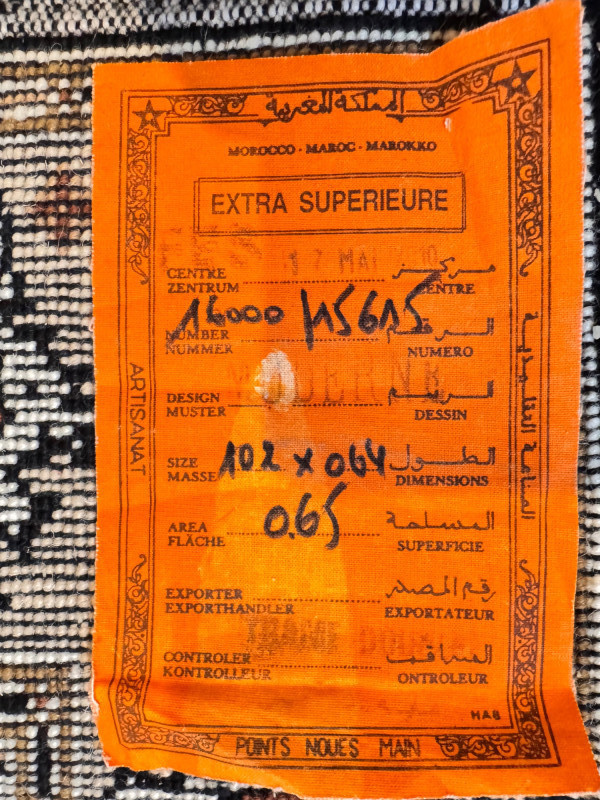 المملكة المغربية
MOROCCO · MAROC · MAROKKO
EXTRA SUPERIEURE
17 MAI
CENTRE مركز
ZENTRUM CENTRE
16000 / 15615
NUMBER الرقم
NUMMER NUMERO
MODERNE
DESIGN الرسم
MUSTER DESSIN
SIZE 102 x 064 الطول
MASSE DIMENSIONS
0.65
AREA المساحة
FLÄCHE SUPERFICIE
EXPORTER رقم المصدر
EXPORTHANDLER EXPORTATEUR
CONTROLER المراقب
KONTROLLEUR ONTROLEUR
HAB
POINTS NOUES MAIN
ARTISANAT
الصناعة التقليدية